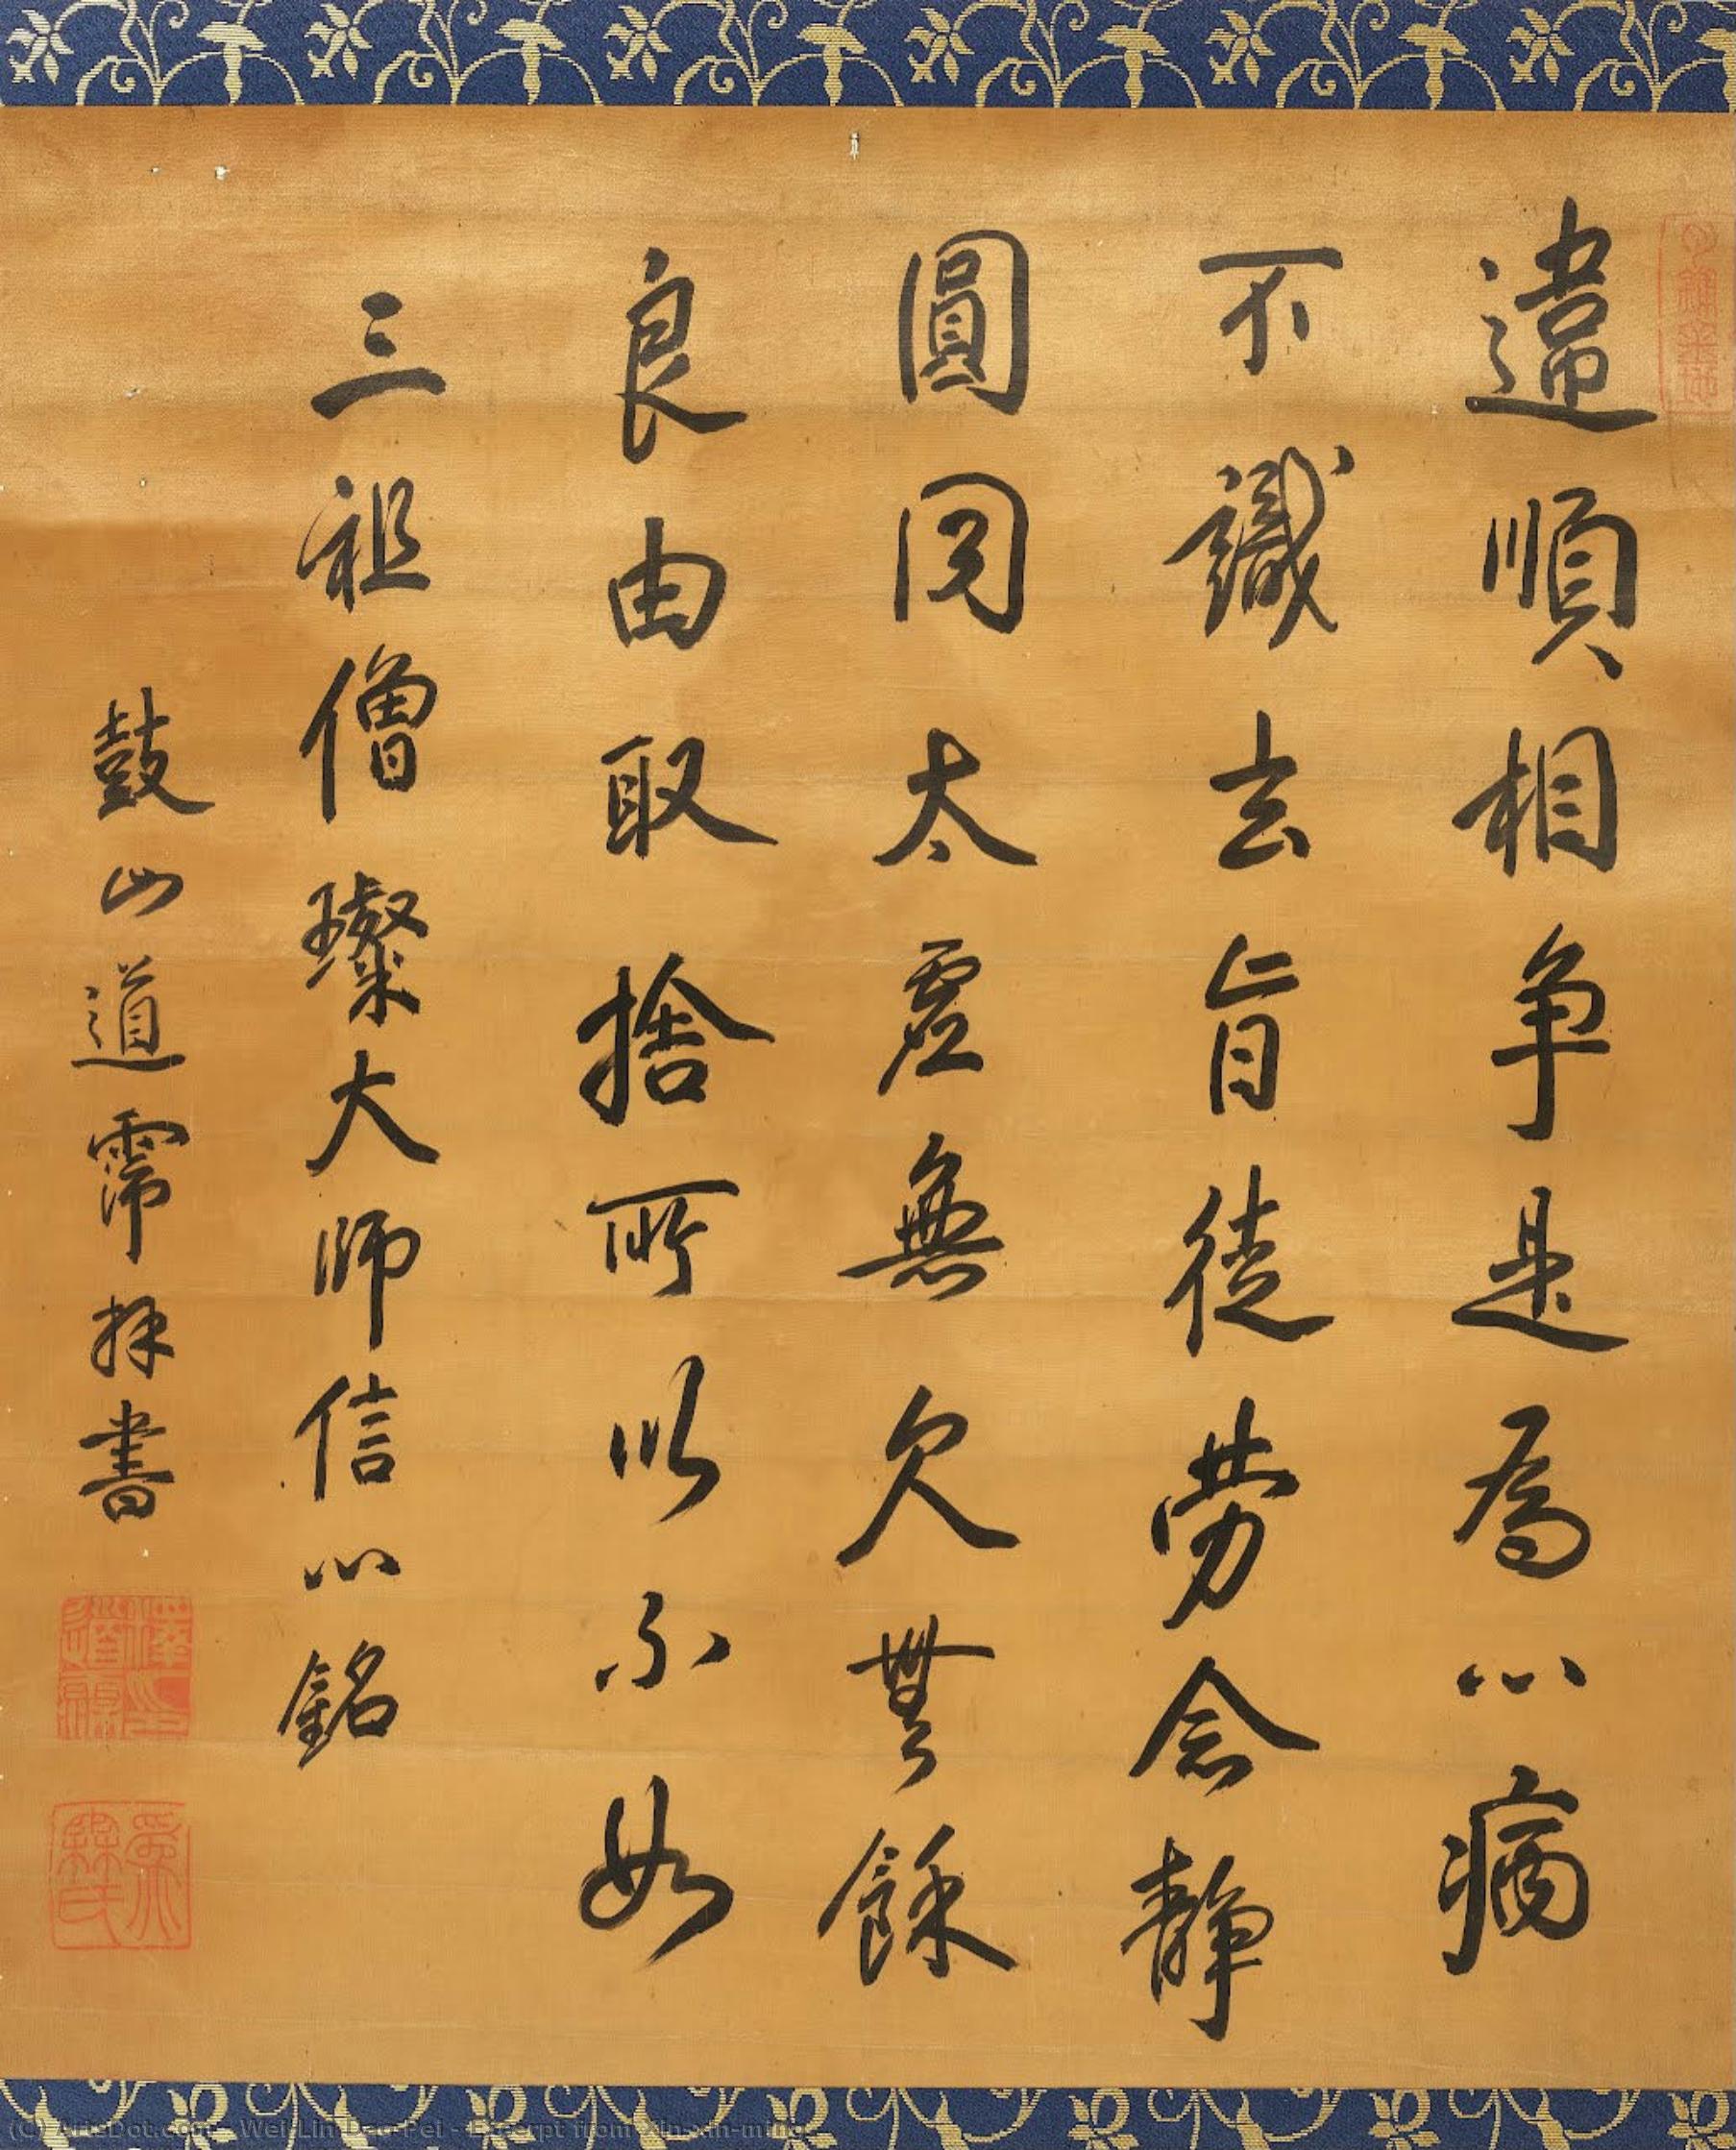 違順相争是為心病
不識玄旨徒勞念静
圓同太虚無欠無餘
良由取捨所以不如
三祖僧璨大师信心銘
鼓山道霈拜書
(C) ArtsDot.com - Wei-Lin Dao-Pei - Excerpt from Xin-xin-ming